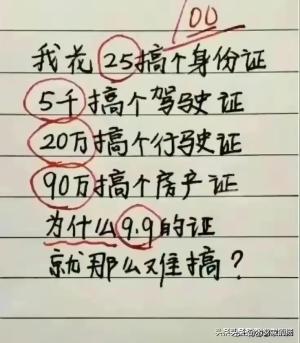 100
我花25搞个身份证
5千搞个驾驶证
20万搞个行驶证
90万搞个房产证
为什么9.9的证
就那么难搞?